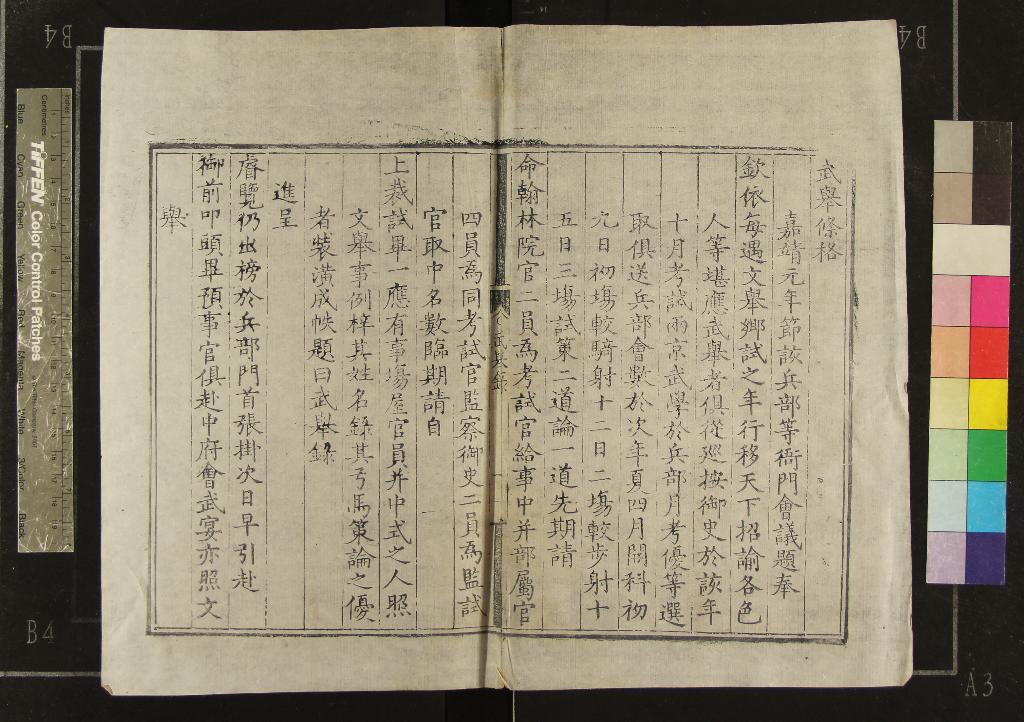 武舉條格
嘉靖元年節該兵部等衙門會議題奉
欽依每遇文舉鄉試之年行移天下招諭各色
人等堪應武舉者俱從廵按御史於該年
十月考試兩京武學於兵部月考優等選
取俱送兵部會數於次年夏四月開科初
九日初塲較騎射十二日二塲較步射十
五日三塲試策二道論一道先期請
命翰林院官二員爲考試官給事中并部屬官
四員爲同考試官監察御史二員爲監試
官取中名數臨期請自
上裁試畢一應有事塲屋官員并中式之人照
文舉事例梓其姓名錄其弓馬策論之優
者裝潢成帙題曰武舉錄
進呈
睿覽仍出榜於兵部門首張掛次日早引赴
御前叩頭畢預事官俱赴中府會武宴亦照文
舉
B4
B4
B4
A3
TIFFEN Color Control Patches
Centimetres
Inches
Blue
Cyan
Green
Yellow
Red
Magenta
White
3/Color
Black